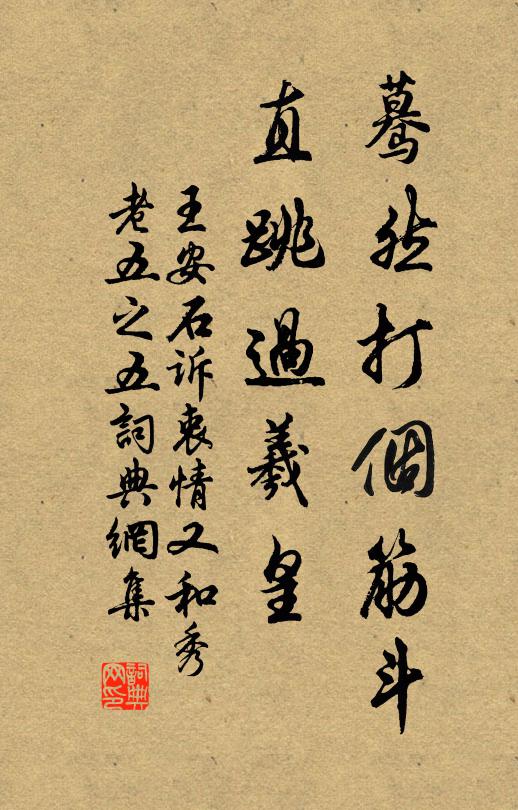 驀然打個筋斗
直跳過羲皇
王安石诉衷情又和秀
老五之五詞典網集
詞典网印